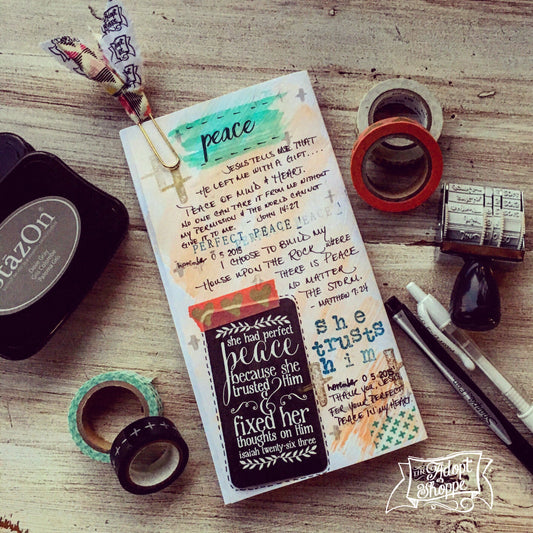 peace
JESUS TELLS ME THAT
HE LEFT ME WITH A GIFT....
PEACE OF MIND & HEART.
NO ONE CAN TAKE IT FROM ME WITHOUT
MY PERMISSION & THE WORLD CANNOT
GIVE IT TO ME. - JOHN 14:27
PERFECT PEACE PEACE!
NOVEMBER 05 2015
I CHOOSE TO BUILD MY
HOUSE UPON THE ROCK WHERE
THERE IS PEACE
NO MATTER
THE STORM.
- MATTHEW 7:24
she
trusts
him
NOVEMBER 05 2015
THANK YOU, JESUS
FOR YOUR PERFECT
PEACE IN MY HEART.
she had perfect
peace
because she
trusted Him
&
fixed her
thoughts on Him
isaiah twenty-six three
StazOn
THE Adopt
Shoppe